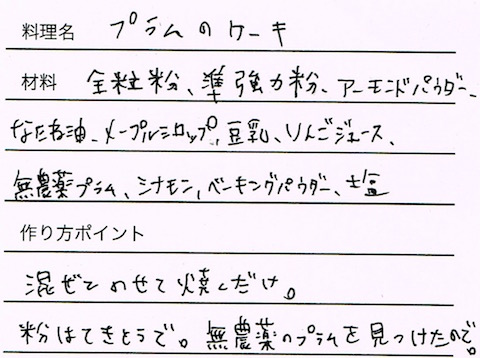 料理名 プラムのケーキ
材料 全粒粉、準強力粉、アーモンドパウダー、
なたね油、メープルシロップ、豆乳、りんごジュース、
無農薬プラム、シナモン、ベーキングパウダー、塩
作り方ポイント
混ぜてのせて焼くだけ。
粉はてきとうで。無農薬のプラムを見つけたので。